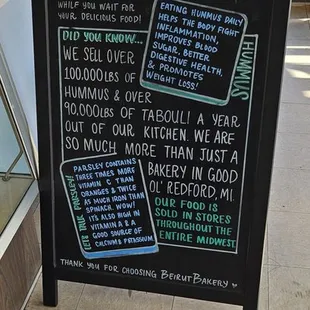 WHILE YOU WAIT FOR
YOUR DELICIOUS FOOD!
EATING HUMMUS DAILY
HELPS THE BODY FIGHT
INFLAMMATION,
IMPROVES BLOOD
SUGAR, BETTER
DIGESTIVE HEALTH,
& PROMOTES
WEIGHT LOSS!
HUMMUS
DID YOU KNOW...
WE SELL OVER
100,000LBS OF
HUMMUS & OVER
90,000LBS OF TABOULI A YEAR
OUT OF OUR KITCHEN. WE ARE
SO MUCH MORE THAN JUST A
BAKERY IN GOOD
OL' REDFORD, MI.
PARSLEY CONTAINS
THREE TIMES MORE
VITAMIN C THAN
ORANGES & TWICE
AS MUCH IRON THAN
SPINACH. WOW!
IT'S ALSO HIGH IN
VITAMIN A & A
GOOD SOURCE OF
CALCIUM & POTASSIUM
LETS TALK PARSLEY!
OUR FOOD IS
SOLD IN STORES
THROUGHOUT THE
ENTIRE MIDWEST.
THANK YOU FOR CHOOSING BEIRUT BAKERY